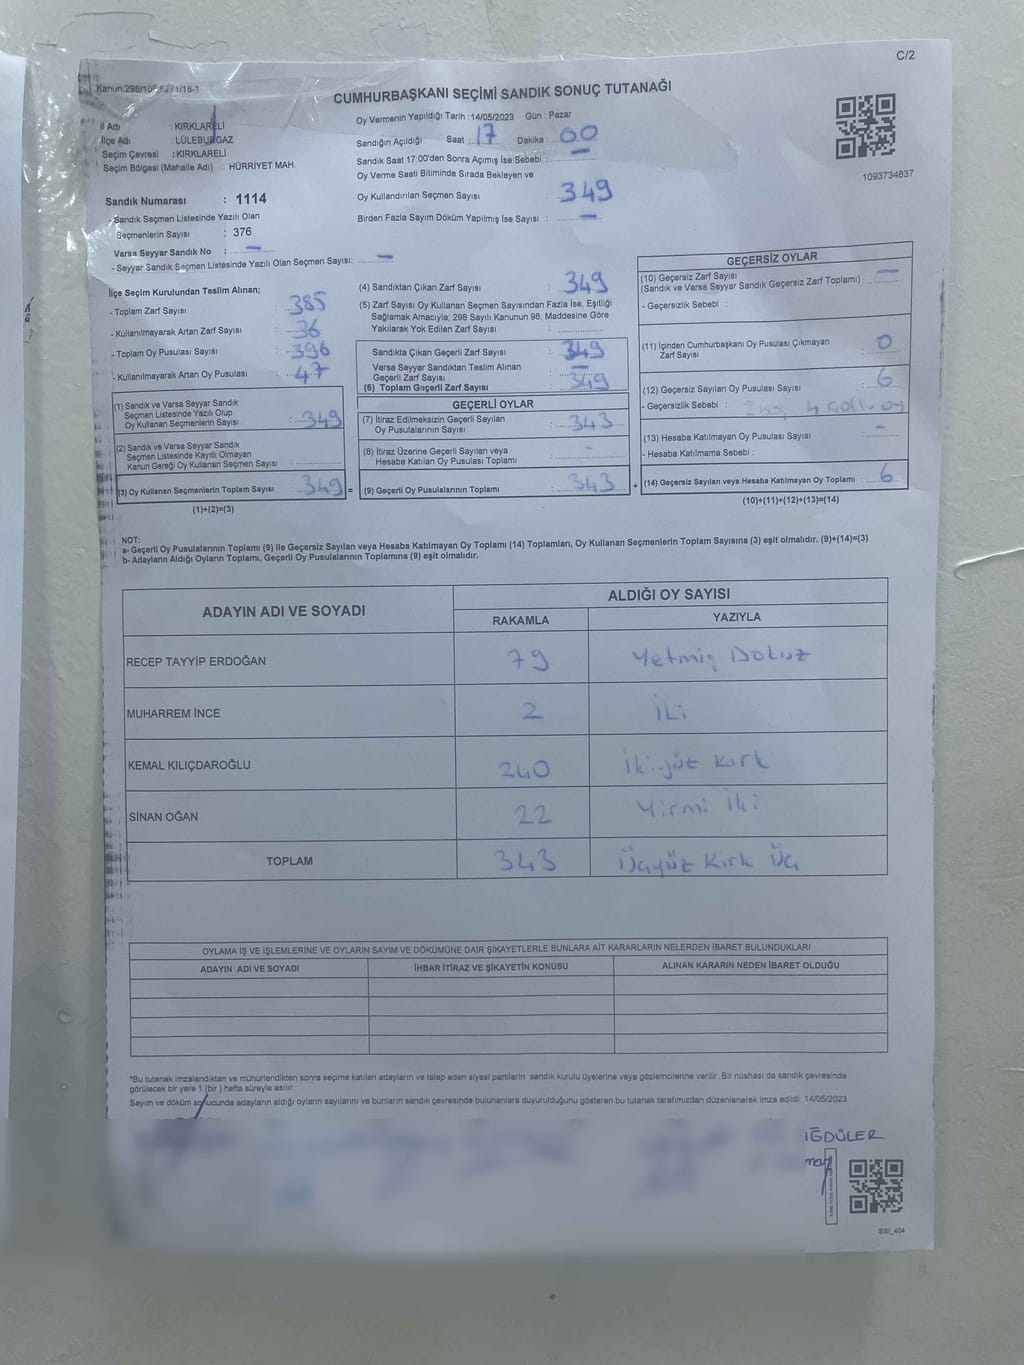 C/2
Kanun:298/105
CUMHURBAŞKANI SEÇİMİ SANDIK SONUÇ TUTANAĞI
İl Adı : KIRKLARELİ
İlçe Adı : LÜLEBURGAZ
Seçim Çevresi : KIRKLARELİ
Seçim Bölgesi (Mahalle Adı) : HÜRRİYET MAH.
Sandık Numarası : 1114
- Sandık Seçmen Listesinde Yazılı Olan
Seçmenlerin Sayısı : 376
Varsa Seyyar Sandık No : -
- Seyyar Sandık Seçmen Listesinde Yazılı Olan Seçmen Sayısı: -
Oy Vermenin Yapıldığı Tarih : 14/05/2023 Gün : Pazar
Sandığın Açıldığı Saat : 17 Dakika : 00
Sandık Saat 17:00'den Sonra Açımış İse Sebebi : -
Oy Verme Saati Bitiminde Sırada Bekleyen ve
Oy Kullandırılan Seçmen Sayısı : 349
Birden Fazla Sayım Döküm Yapılmış İse Sayısı : -
1093734837
İlçe Seçim Kurulundan Teslim Alınan;
- Toplam Zarf Sayısı : 385
- Kullanılmayarak Artan Zarf Sayısı : 36
- Toplam Oy Pusulası Sayısı : 396
- Kullanılmayarak Artan Oy Pusulası : 47
(1) Sandık ve Varsa Seyyar Sandık
Seçmen Listesinde Yazılı Olup
Oy Kullanan Seçmenlerin Sayısı : 349
(2) Sandık ve Varsa Seyyar Sandık
Seçmen Listesinde Kayıtlı Olmayan
Kanun Gereği Oy Kullanan Seçmen Sayısı :
(3) Oy Kullanan Seçmenlerin Toplam Sayısı : 349 =
(1)+(2)=(3)
(4) Sandıktan Çıkan Zarf Sayısı : 349
(5) Zarf Sayısı Oy Kullanan Seçmen Sayısından Fazla İse, Eşitliği
Sağlamak Amacıyla; 298 Sayılı Kanunun 98. Maddesine Göre
Yakılarak Yok Edilen Zarf Sayısı :
Sandıkta Çıkan Geçerli Zarf Sayısı : 349
Varsa Seyyar Sandıktan Teslim Alınan
Geçerli Zarf Sayısı : -
(6) Toplam Geçerli Zarf Sayısı : 349
GEÇERLİ OYLAR
(7) İtiraz Edilmeksizin Geçerli Sayılan
Oy Pusulalarının Sayısı : 343
(8) İtiraz Üzerine Geçerli Sayılan veya
Hesaba Katılan Oy Pusulası Toplamı : -
(9) Geçerli Oy Pusulalarının Toplamı : 343 +
GEÇERSİZ OYLAR
(10) Geçersiz Zarf Sayısı
(Sandık ve Varsa Seyyar Sandık Geçersiz Zarf Toplamı) : -
- Geçersizlik Sebebi :
(11) İçinden Cumhurbaşkanı Oy Pusulası Çıkmayan
Zarf Sayısı : 0
(12) Geçersiz Sayılan Oy Pusulası Sayısı : 6
- Geçersizlik Sebebi :
(13) Hesaba Katılmayan Oy Pusulası Sayısı : -
- Hesaba Katılmama Sebebi :
(14) Geçersiz Sayılan veya Hesaba Katılmayan Oy Toplamı : 6
(10)+(11)+(12)+(13)=(14)
NOT:
a- Geçerli Oy Pusulalarının Toplamı (9) ile Geçersiz Sayılan veya Hesaba Katılmayan Oy Toplamı (14) Toplamları, Oy Kullanan Seçmenlerin Toplam Sayısına (3) eşit olmalıdır. (9)+(14)=(3)
b- Adayların Aldığı Oyların Toplamı, Geçerli Oy Pusulalarının Toplamına (9) eşit olmalıdır.
ADAYIN ADI VE SOYADI ALDIĞI OY SAYISI
RAKAMLA YAZIYLA
RECEP TAYYİP ERDOĞAN 79 Yetmiş Dokuz
MUHARREM İNCE 2 İki
KEMAL KILIÇDAROĞLU 240 İkiyüz Kırk
SİNAN OĞAN 22 Yirmi İki
TOPLAM 343 Üçyüz Kırk Üç
OYLAMA İŞ VE İŞLEMLERİNE VE OYLARIN SAYIM VE DÖKÜMÜNE DAİR ŞİKAYETLERLE BUNLARA AİT KARARLARIN NELERDEN İBARET BULUNDUKLARI
ADAYIN ADI VE SOYADI İHBAR İTİRAZ VE ŞİKAYETİN KONUSU ALINAN KARARIN NEDEN İBARET OLDUĞU
*Bu tutanak imzalandıktan ve mühürlendikten sonra seçime katılan adayların ve talep eden siyasi partilerin sandık kurulu üyelerine veya gözlemcilerine verilir. Bir nüshası da sandık çevresinde
görülecek bir yere 1 (bir) hafta süreyle asılır.
Sayım ve döküm sonucunda adayların aldığı oyların sayılarını ve bunların sandık çevresinde bulunanlara duyurulduğunu gösteren bu tutanak tarafımızdan düzenlenerek imza edildi. 14/05/2023
İĞDÜLER
SSI_404